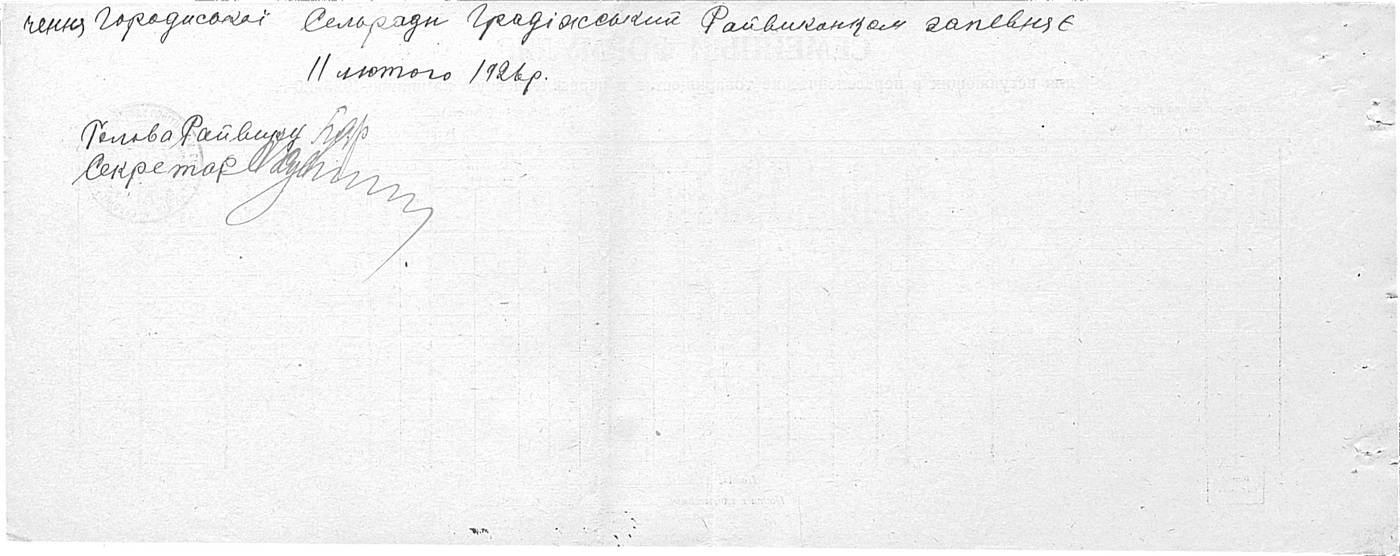 чення Городиської Селоради Градіжський Райвиконком запевняє
11 лютого 1926 р.
Голова Райвику
Секретар